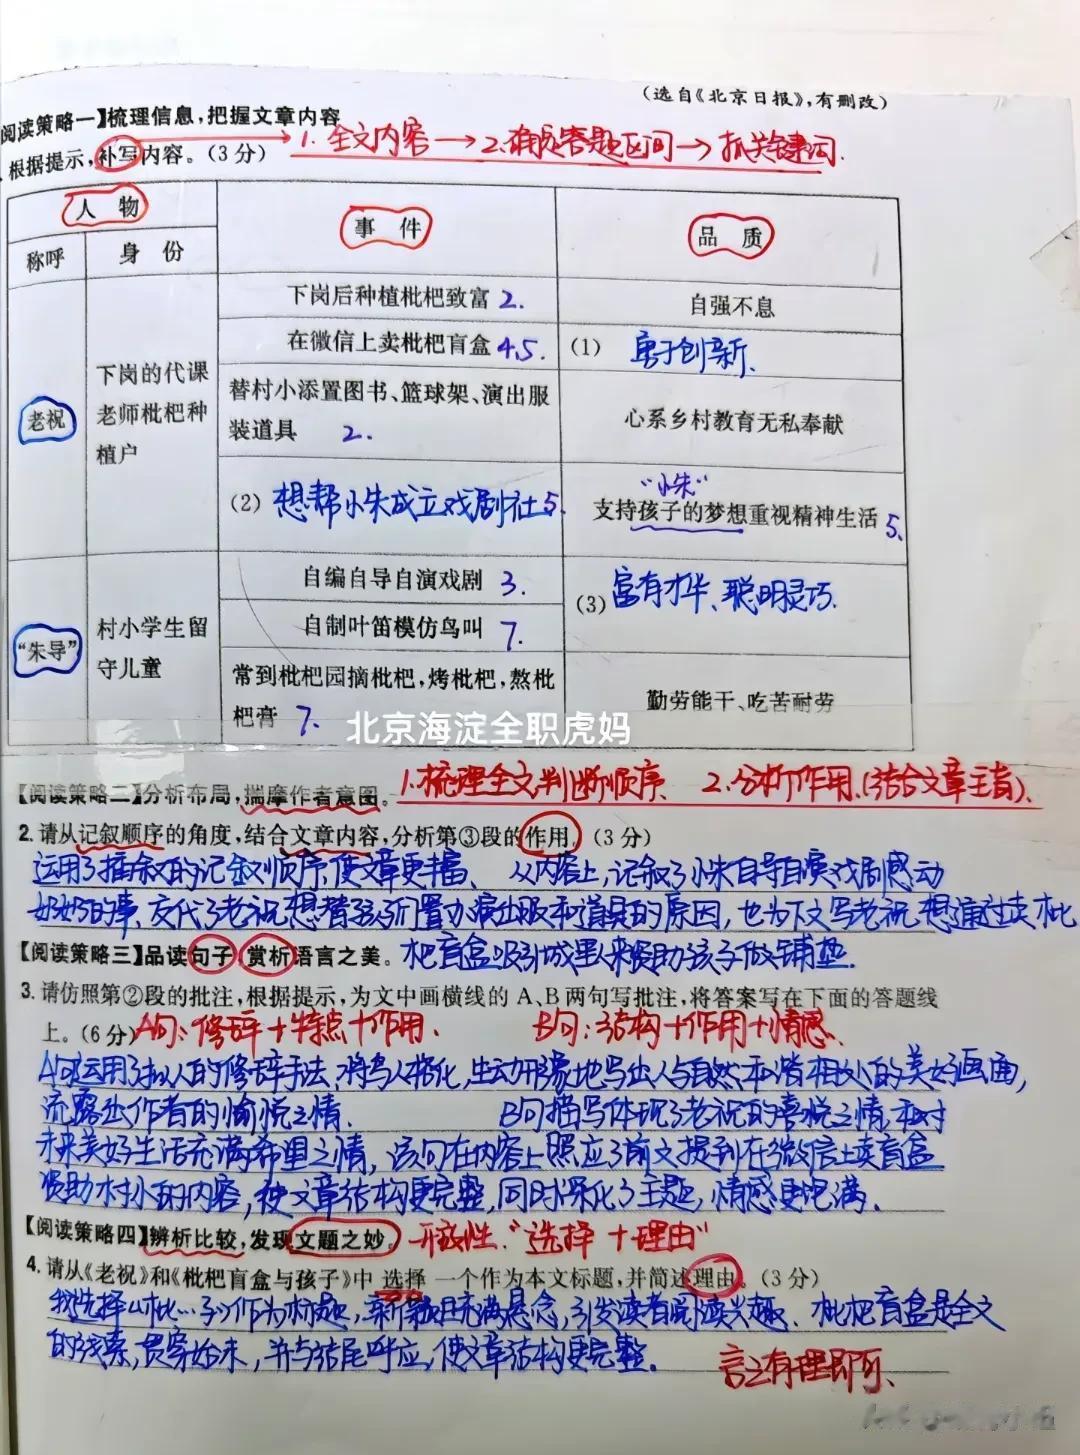 (选自《北京日报》,有删改)
阅读策略一】梳理信息,把握文章内容
根据提示,补写内容。(3分)
1.全文内容→2.确定答题区间→抓关键词.
人 物
事 件
品 质
称呼
身 份
老祝
下岗的代课
老师枇杷种
植户
下岗后种植枇杷致富 2.
自强不息
在微信上卖枇杷盲盒 4.5.
(1) 勇于创新.
替村小添置图书、篮球架、演出服
装道具 2.
心系乡村教育无私奉献
(2) 想帮小朱成立戏剧社5.
“小朱”
支持孩子的梦想重视精神生活 5.
“朱导”
村小学生留
守儿童
自编自导自演戏剧 3.
(3) 富有才华、聪明灵巧.
自制叶笛模仿鸟叫 7.
常到枇杷园摘枇杷,烤枇杷,熬枇
杷膏 7.
勤劳能干、吃苦耐劳
北京海淀全职虎妈
【阅读策略二】分析布局,揣摩作者意图。
1.梳理全文,判断顺序、 2.分析作用.(结合文章主旨).
2.请从记叙顺序的角度,结合文章内容,分析第③段的作用。(3分)
运用了插叙的记叙顺序,使文章更丰富、 从内容上,记叙了小朱自导自演戏剧感动
奶奶的事,交代了老祝想替孩子们置办演出服和道具的原因,也为下文写老祝想通过卖枇
【阅读策略三】品读句子,赏析语言之美。
杷盲盒吸引城里人来资助孩子做铺垫.
3.请仿照第②段的批注,根据提示,为文中画横线的 A、B两句写批注,将答案写在下面的答题线
上。(6分)
A句:修辞+特点+作用. B句:结构+作用+情感、
A句运用了拟人的修辞手法,将鸟人格化,生动形象地写出人与自然和谐相处的美好画面,
流露出作者的愉悦之情. B句描写体现了老祝的喜悦之情和对
未来美好生活充满希望之情,该句在内容上照应了前文提到在微信上卖盲盒
资助村小的内容,使文章结构更完整,同时深化了主题,情感更饱满.
【阅读策略四】辨析比较,发现文题之妙。
开放性.“选择+理由”
4.请从《老祝》和《枇杷盲盒与孩子》中 选择 一个作为本文标题,并简述理由。(3分)
我选择《枇…子》作为标题,新颖且充满悬念,引发读者阅读兴趣、枇杷盲盒是全文
的线索,贯穿始末,并与结尾呼应,使文章结构更完整.
言之有理即可、